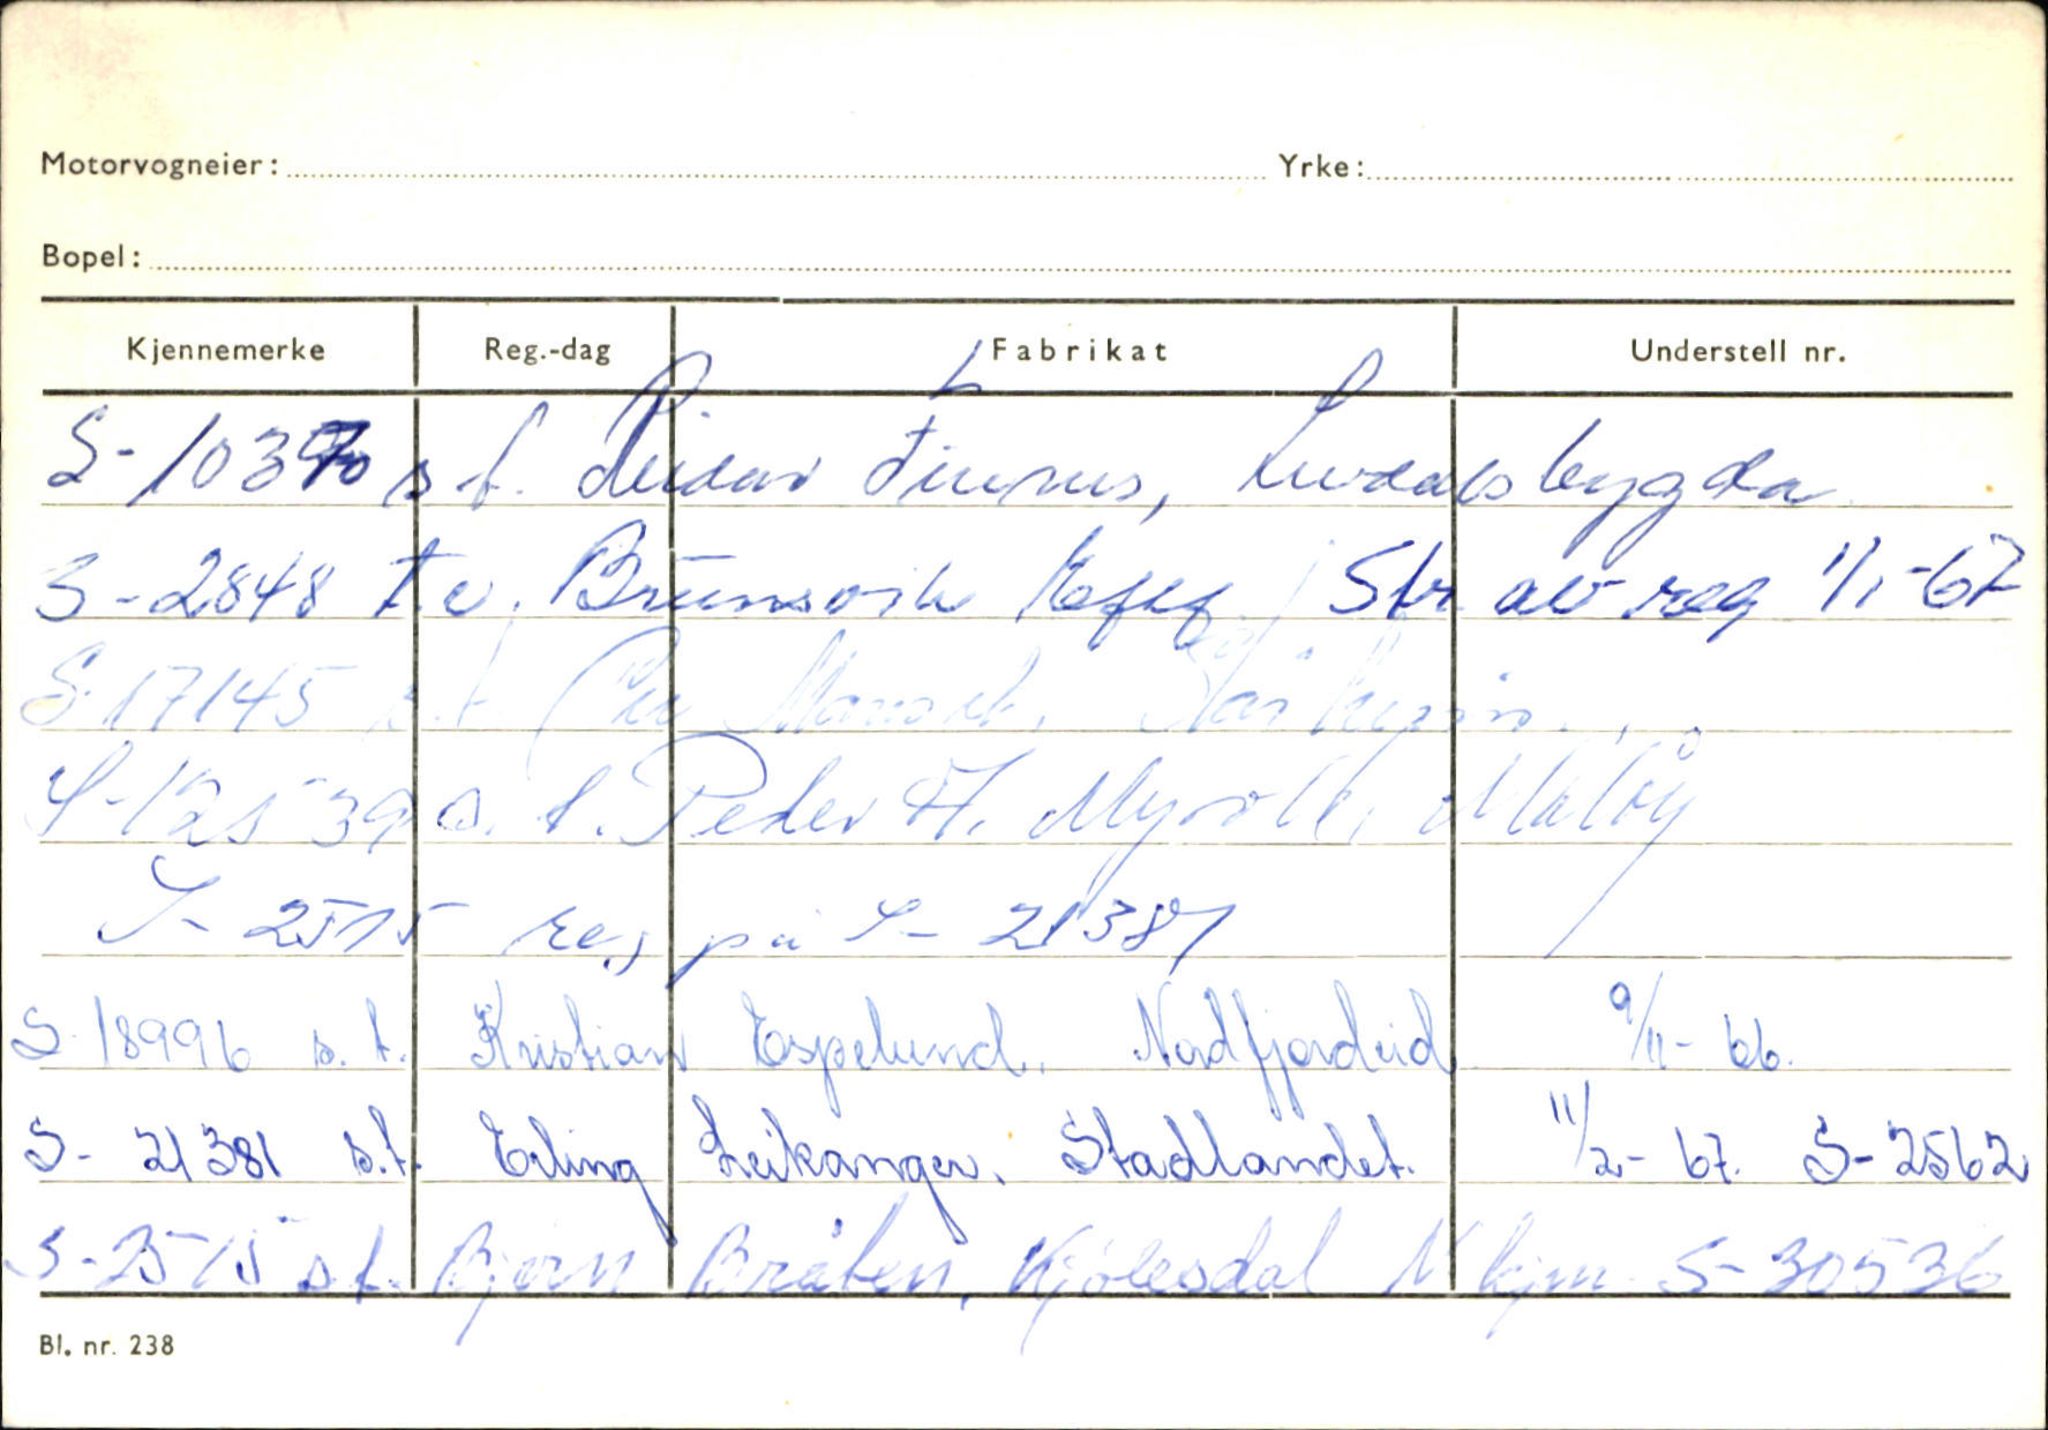 Motorvogneier: Yrke:
Bopel:
Kjennemerke Reg.-dag Fabrikat Understell nr.
S-10370 s.t. Reidar
S-2848 t.v. Brunsvik Str avreg 1/1-67
S-17145 s.t.
S-12539 s.t. Peder H. Måløy
S-2515 reg på S-21381
S-18996 s.t. Kristian Espelund. Nordfjordeid 9/11-66.
S-21381 s.t. Erling Leikanger. Stadlandet. 11/2-67. S-2562
S-2515 s.t. Bjørn Bråten, Kjølesdal N kjm. S-30536
Bl. nr. 238